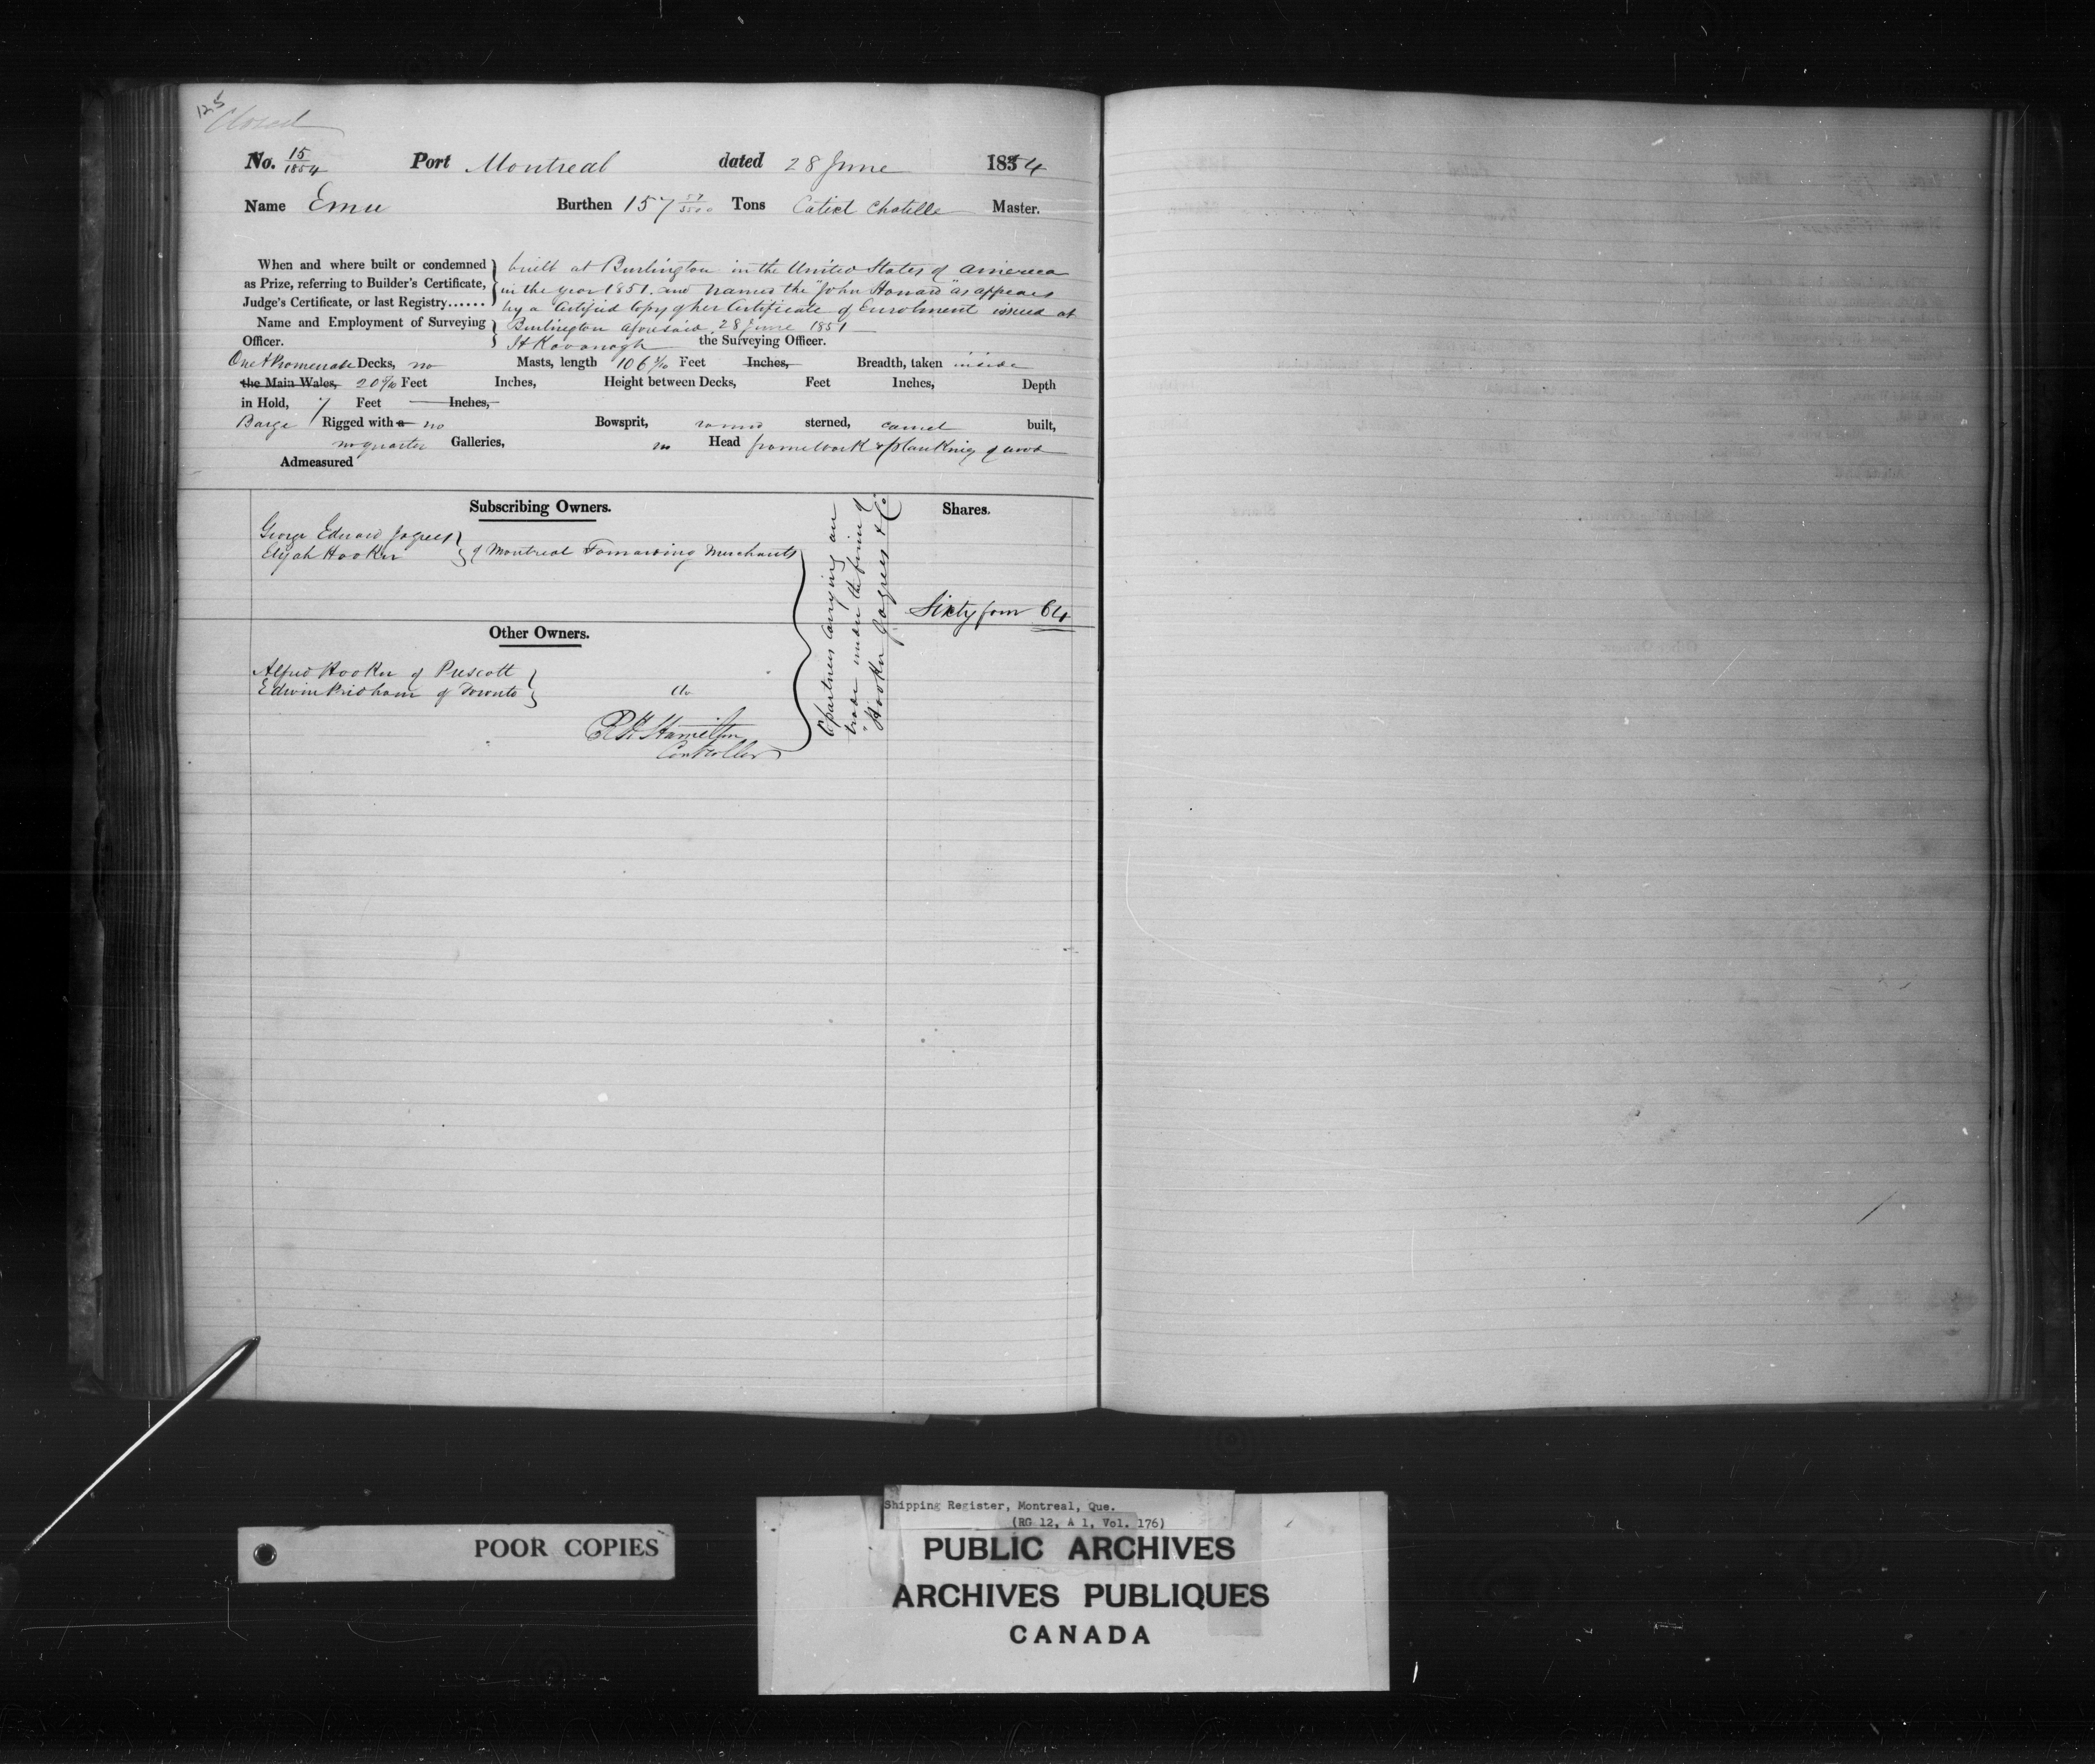 125
Closed
No. 15/1854 Port Montreal dated 28 June 1854
Name Emu Burthen 157 Tons Chatelle Master.
When and where built or condemned as Prize, referring to Builder's Certificate, Judge's Certificate, or last Registry......
built at Burlington in the United States of America
in the year 1851. and named the "John Howard" as appears
by a Certified Copy of her Certificate of Enrolment issued at
Burlington aforesaid 28 June 1851
Name and Employment of Surveying Officer.
H Kavanagh the Surveying Officer.
One & Promenade Decks, no Masts, length 106 Feet Inches, Breadth, taken inside
the Main Wales, 20 Feet Inches, Height between Decks, Feet Inches, Depth
in Hold, 7 Feet Inches,
Barge Rigged with a no Bowsprit, round sterned, carvel built,
no quarter Galleries, no Head framework & planking of wood
Admeasured
Subscribing Owners. Shares.
George Edward Jaques
Elijah Hooker
of Montreal Forwarding Merchants
Copartners Carrying on
trade under the firm of
"Hooker Jaques & Co
Sixty four 64
Other Owners.
Alfred Hooker of Prescott
Edwin Pridham of Toronto
do
Hamilton
Controller
POOR COPIES
Shipping Register, Montreal, Que.
(RG 12, A 1, Vol. 176)
PUBLIC ARCHIVES
ARCHIVES PUBLIQUES
CANADA